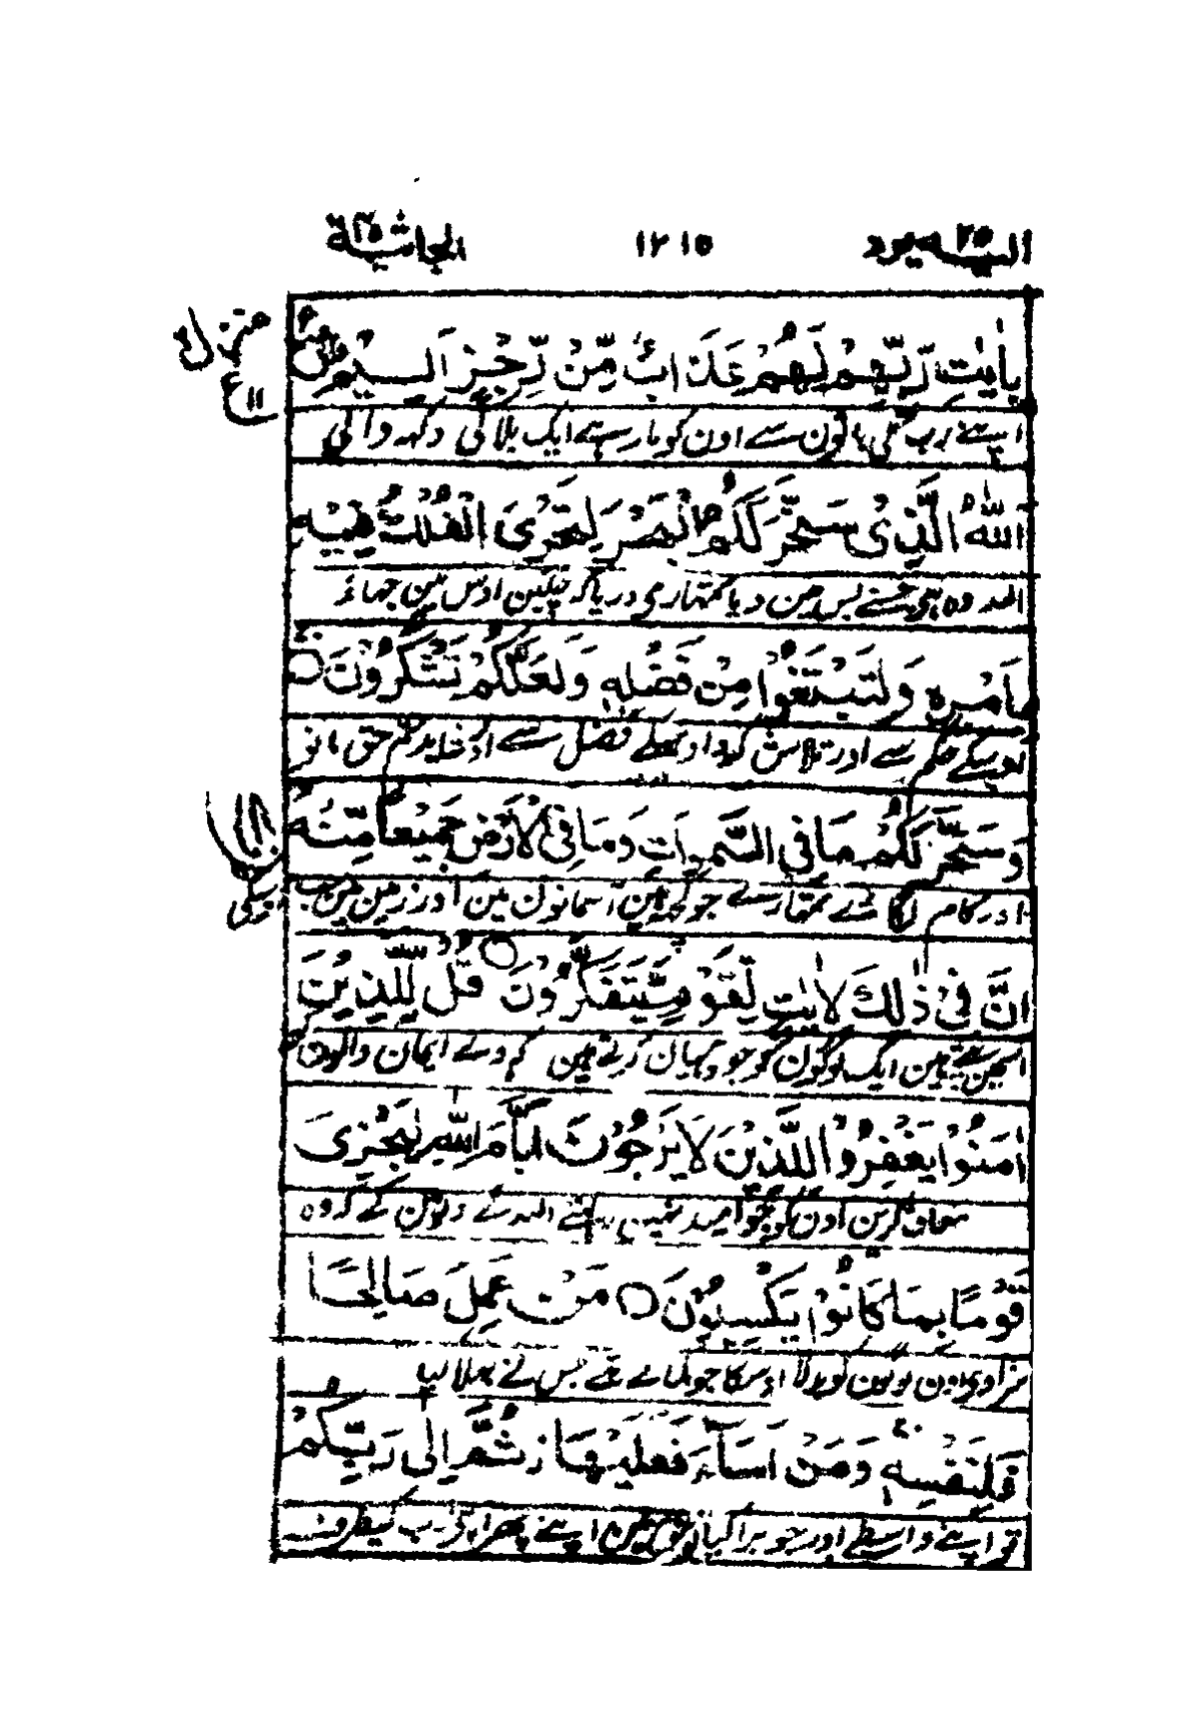 الیہ یرد ٢٥
١٢١٥
الجاثیة ٤٥
بِاٰیٰتِ رَبِّهِمْ لَهُمْ عَذَابٌ مِّنْ رِّجْزٍ اَلِیْمٌ
منزل
ع ١١
اپنے رب کی باتون سے اون کو مار ہے ایک بلا کی دکھہ والی
اَللّٰهُ الَّذِیْ سَخَّرَ لَكُمُ الْبَحْرَ لِتَجْرِیَ الْفُلْكُ فِیْهِ
اللہ وہ ہی جسنے بس مین دیا تمہاری دریا کہ چلین اوس مین جہاز
بِاَمْرِهٖ وَلِتَبْتَغُوْا مِنْ فَضْلِهٖ وَلَعَلَّكُمْ تَشْكُرُوْنَ
اوسکے حکم سے اور تلاش کرو اوسکے فضل سے اور شاید تم حق مانو
وَسَخَّرَ لَكُمْ مَا فِی السَّمٰوٰتِ وَمَا فِی الْاَرْضِ جَمِیْعًا مِّنْهُ
اور کام لگائے تمہارے جو کچھہ ہین آسمانون مین اور زمین مین سب
اِنَّ فِیْ ذٰلِكَ لَاٰیٰتٍ لِّقَوْمٍ یَّتَفَكَّرُوْنَ قُلْ لِّلَّذِیْنَ
اسمین پتے ہین ایک لوگون کو جو دہیان کرتے ہین کہہ دے ایمان والون کو
اٰمَنُوْا یَغْفِرُوْا لِلَّذِیْنَ لَا یَرْجُوْنَ اَیَّامَ اللّٰهِ لِیَجْزِیَ
معاف کرین اون کو جو امید نہین رکھتے اللہ کے دنون کے کہ وہ
قَوْمًا بِمَا كَانُوْا یَكْسِبُوْنَ مَنْ عَمِلَ صَالِحًا
سزا دی لوگون کو بدلا اوس کا جو کماتے تھے جس نے بھلا کیا
فَلِنَفْسِهٖ وَمَنْ اَسَآءَ فَعَلَیْهَا ز ثُمَّ اِلٰی رَبِّكُمْ
تو اپنے واسطے اور جو برا کیا تو اپنے پھر اپنے رب کیطرف